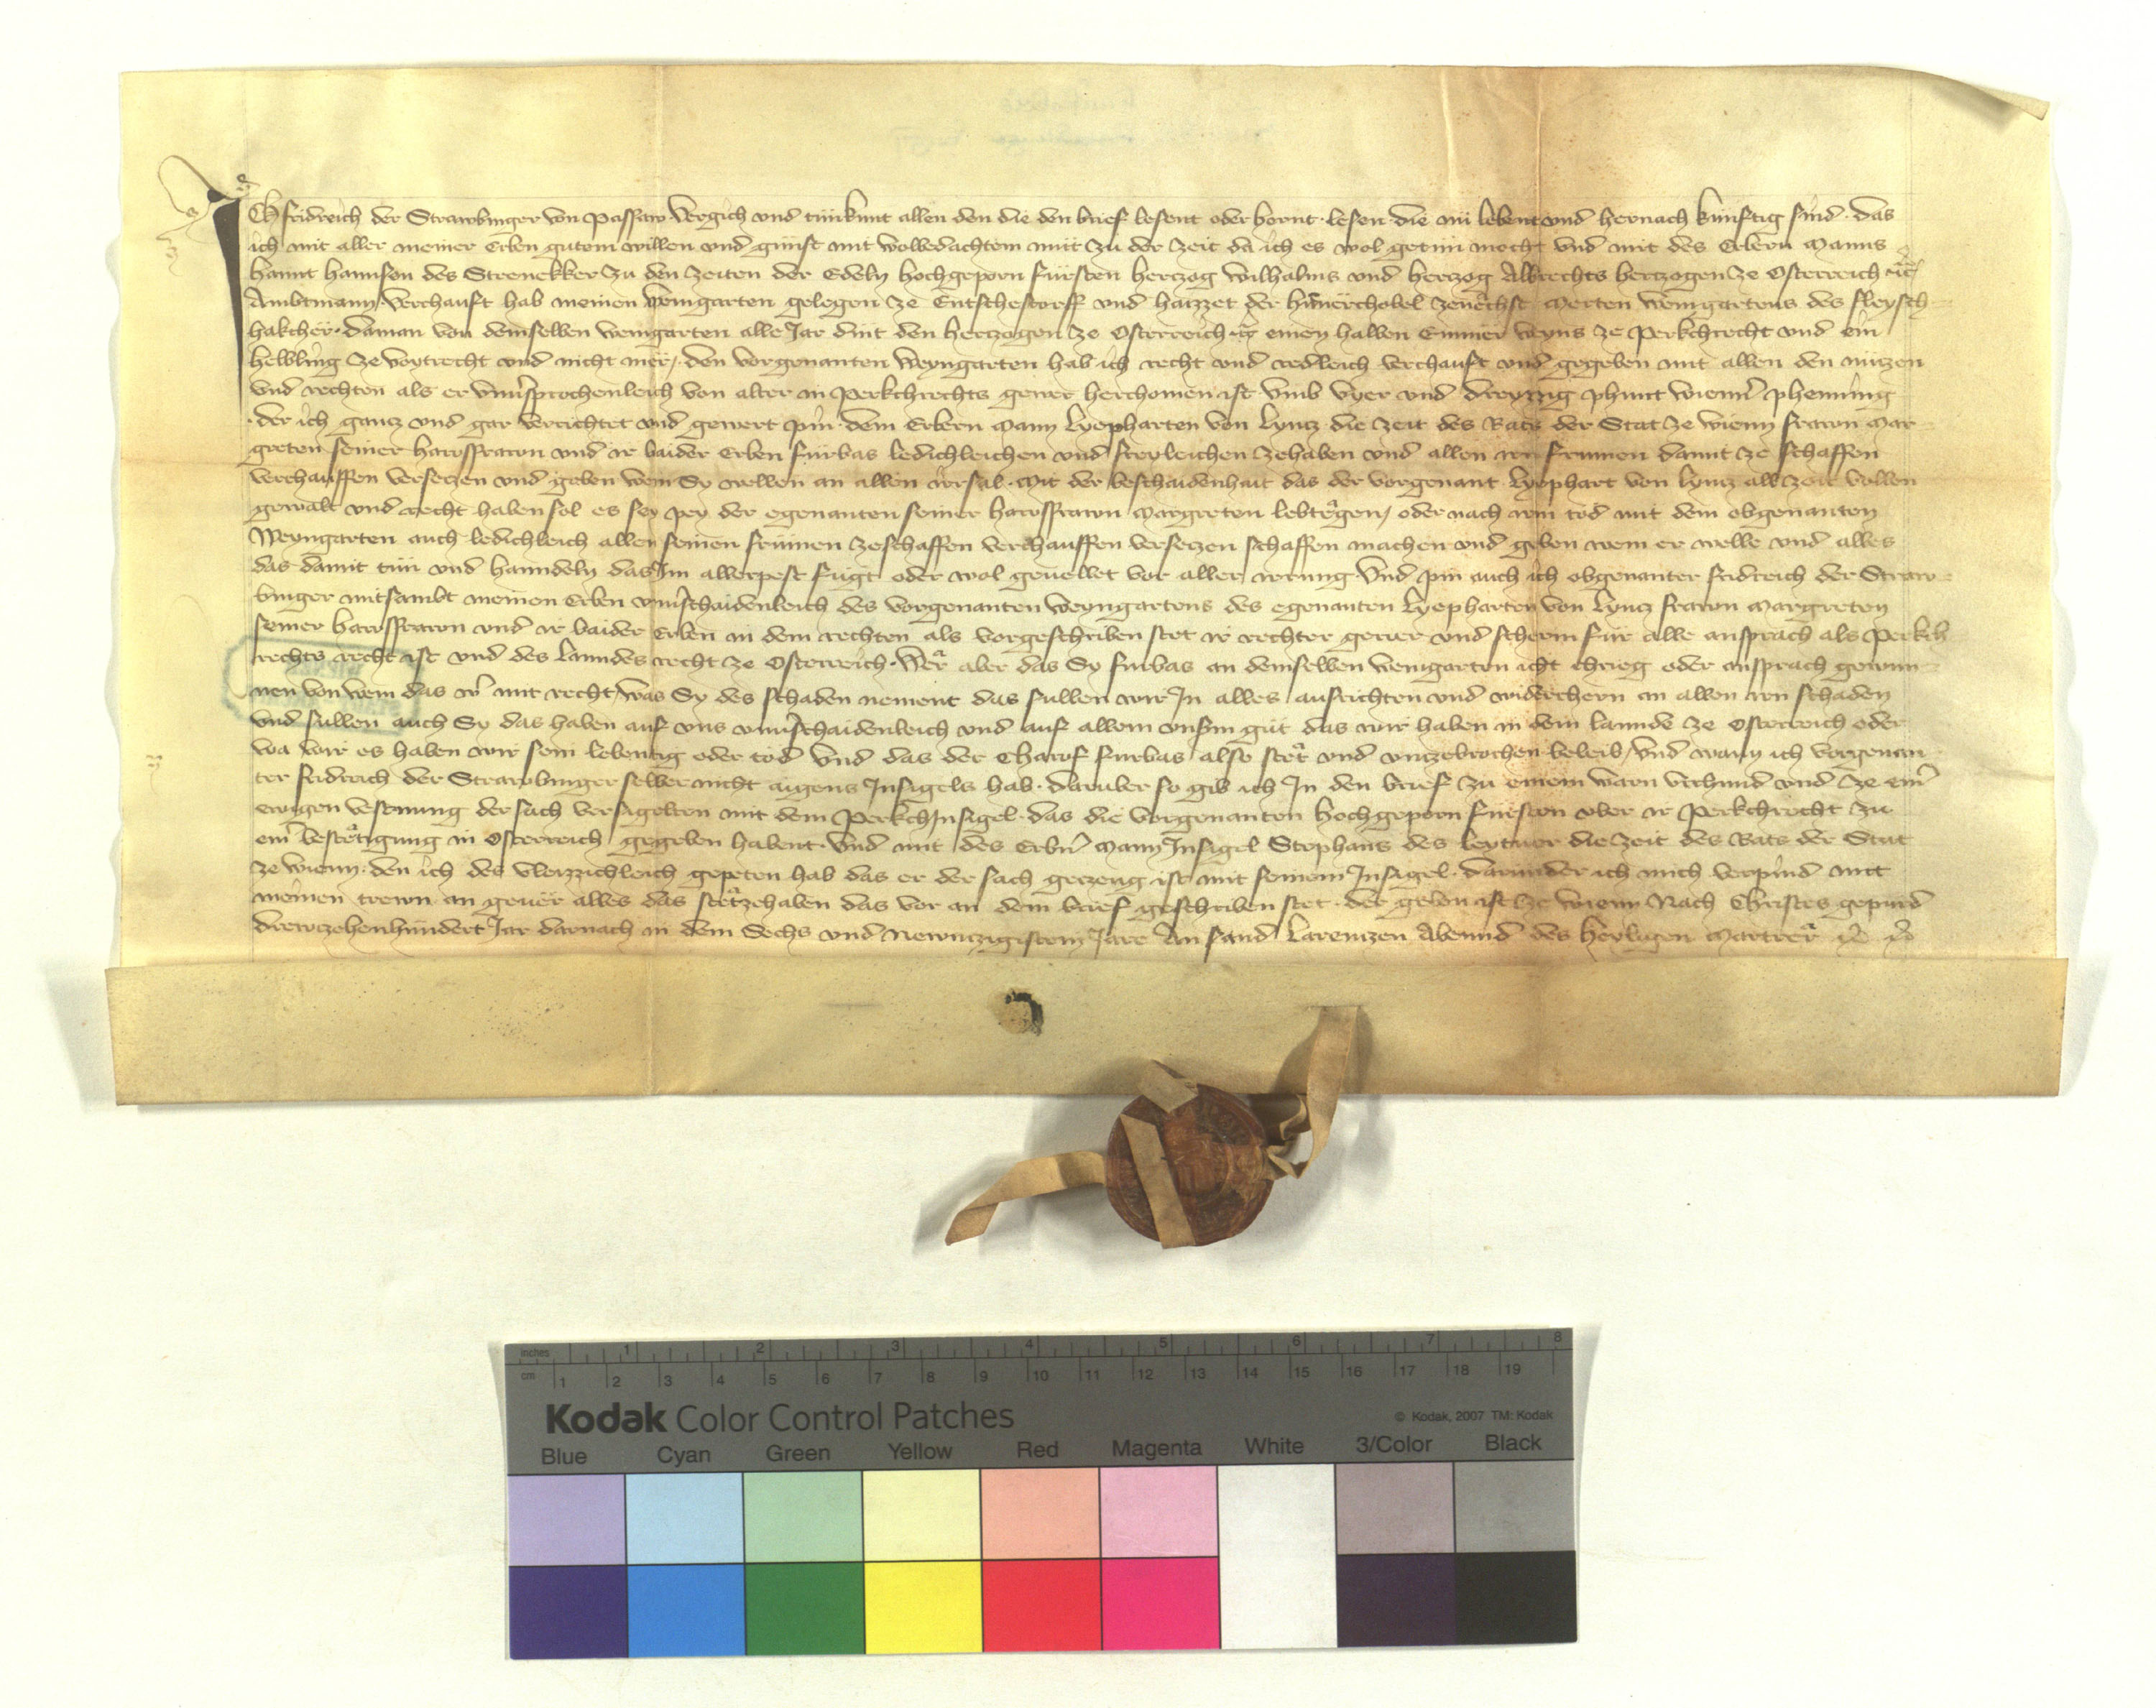 Ich fridreich der Strawbinger von Passaw Vergich vnd tün kunt allen den die den brief lesent oder hornt lesen die nü lebent vnd hernach künftig sind · das
ich mit aller meiner Erben gutem willen vnd gunst mit wolbedachtem müt zu der zeit da ich es wol getün mocht vnd mit des Erbern Manns
hannt hannsen des Strenekker zu den zeiten der Edeln hochgeporn fürsten herczog Wilhalms vnd herczog Albrechts herczogen ze Osterreich etc
Ambtmann · Verchauft hab meinen weingarten gelegen ze Entschestorff vnd haizzet der hünerchobel zenechst Merten weingartens des fleysch
hakcher · daman von demselben weingarten alle Jar dint den herczogen ze Osterreich etc einen halben Emmer weyns ze Perkchrecht vnd ein
helbling ze voytrecht vnd nicht mer / den vorgenanten Weyngarten hab ich recht vnd redleich verchauft vnd gegeben mit allen den nüczen
vnd rechten als er vnuersprochenleich von alter in Perkchrechts gewer herchomen ist vmb vyer vnd dreyzzig phunt wienner phenning
· der ich gancz vnd gar verrichtet vnd gewert pin · dem Erbern Mann Lyepharten von Lyncz die zeit des Rats der Stat ze wienn frawn Mar
greten seiner hawsfrawn vnd ir baider Erben fürbas ledichleichen vnd freyleichen zehaben vnd allen irn frumen damit ze schaffen
verchauffen verseczen vnd geben wem Sy wellen an allen irrsal · Mit der beschaidenhait das der vorgenant Lyephart von Lyncz allzeit vollen
gewalt vnd recht haben sol es sey pey der egenanten seiner hawsfrawn Margreten lebtegen / oder nach irm tod mit dem obgenanten
Weyngarten auch ledichleich allen seinen frümen zeschaffen verchauffen verseczen schaffen machen vnd geben wem er welle vnd alles
das damit tün vnd hanndeln das Im allerpest fügt oder wol geuellet vor aller irrung · Vnd pin auch ich obgenanter fridreich der Straw
binger mitsambt meinen Erben vnuerschaidenleich des vorgenanten Weyngartens des egenanten Lyepharten von Lyncz frawn Margreten
seiner hawsfrawn vnd ir baider Erben in dem rechten als vorgeschriben stet ir rechter gewer vnd scherm für alle ansprach als Perkch
rechts recht ist vnd des Lanndes recht ze Osterreich · Wer aber das Sy fürbas an demselben weingarten icht chrieg oder ansprach gewun
nen von wem das wer mit recht / was Sy des schaden nement das sullen wir In alles ausrichten vnd widerchern an allen irn schaden
vnd sullen auch Sy das haben auf vns vnuerschaidenleich vnd auf allem vnserm güt das wir haben in dem lannde ze Osterreich oder
wa wir es haben wir sein lebentig oder tod Vnd das der Chawf fürbas also stet vnd vnczebrochen beleib / Vnd wann ich vorgenan
ter fridreich der Strawbinger selber nicht aigens Insigels hab · darüber so gib ich In den brief zu einem warn vrchund vnd ze einer
ewigen vestnung der sach versigelten mit dem PerkchInsigel · das die vorgenanten hochgeporn fürsten vber ir Perkchrecht zu
einer bestetigung in Osterreich gegeben habent · Vnd mit des Erbern Mann Insigel Stephans des leytner die zeit des Rats der Stat
ze wienn · den ich des vleizzichleich gepeten hab das er der sach geczeug ist mit seinem Insigel · daründer ich mich verpind mit
meinen trewn an geuer alles das stet zehaben das vor an dem brief geschriben stet · der geben ist ze wienn Nach Christes gepürd
drewczehenhundert Jar darnach in dem Sechs vnd Newnczigistem Jare An sand Larenczen Abennd des heyligen Martrer etc etc
inches 1 2 3 4 5 6 7 8
cm 1 2 3 4 5 6 7 8 9 10 11 12 13 14 15 16 17 18 19
Kodak Color Control Patches © Kodak, 2007 TM: Kodak
Blue Cyan Green Yellow Red Magenta White 3/Color Black